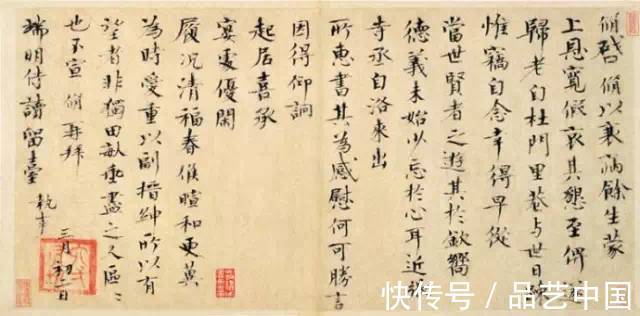 脩啓脩以衰病餘生蒙
上恩寬假哀其懇至俾
歸老自杜門里巷與世日疎
惟竊自念幸得早從
當世賢者之遊其於欽嚮
德義未始少忘於心耳近張
寺丞自洛來出
所惠書其為感慰何可勝言
因得仰詢
起居喜承
宴處優閑
履況清福春候暄和更冀
為時愛重以副搢紳所以有
望者非獨田畝垂盡之人區〻
也不宣脩再拜
端明侍讀留臺執事 三月初二日
快传号/品艺中国